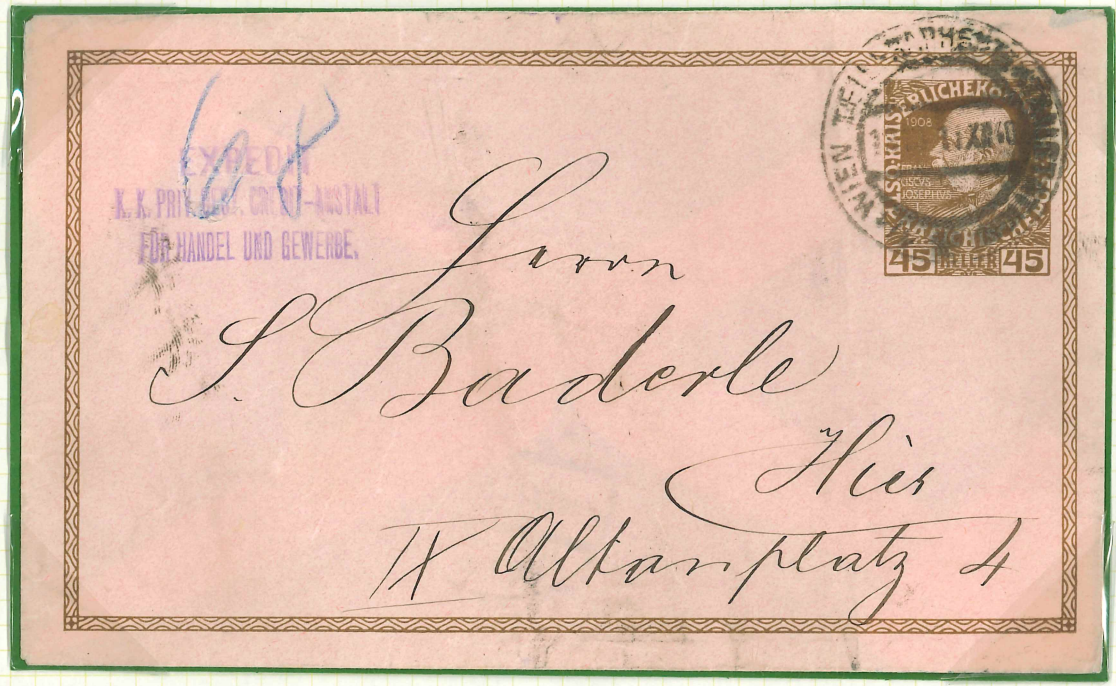 68
EXPEDIT
K. K. PRIV. OEST. CREDIT-ANSTALT
FÜR HANDEL UND GEWERBE.
WIEN
XII 10
1908
45 HELLER 45
Herrn
S. Baderle
Hier
IX Altanplatz 4